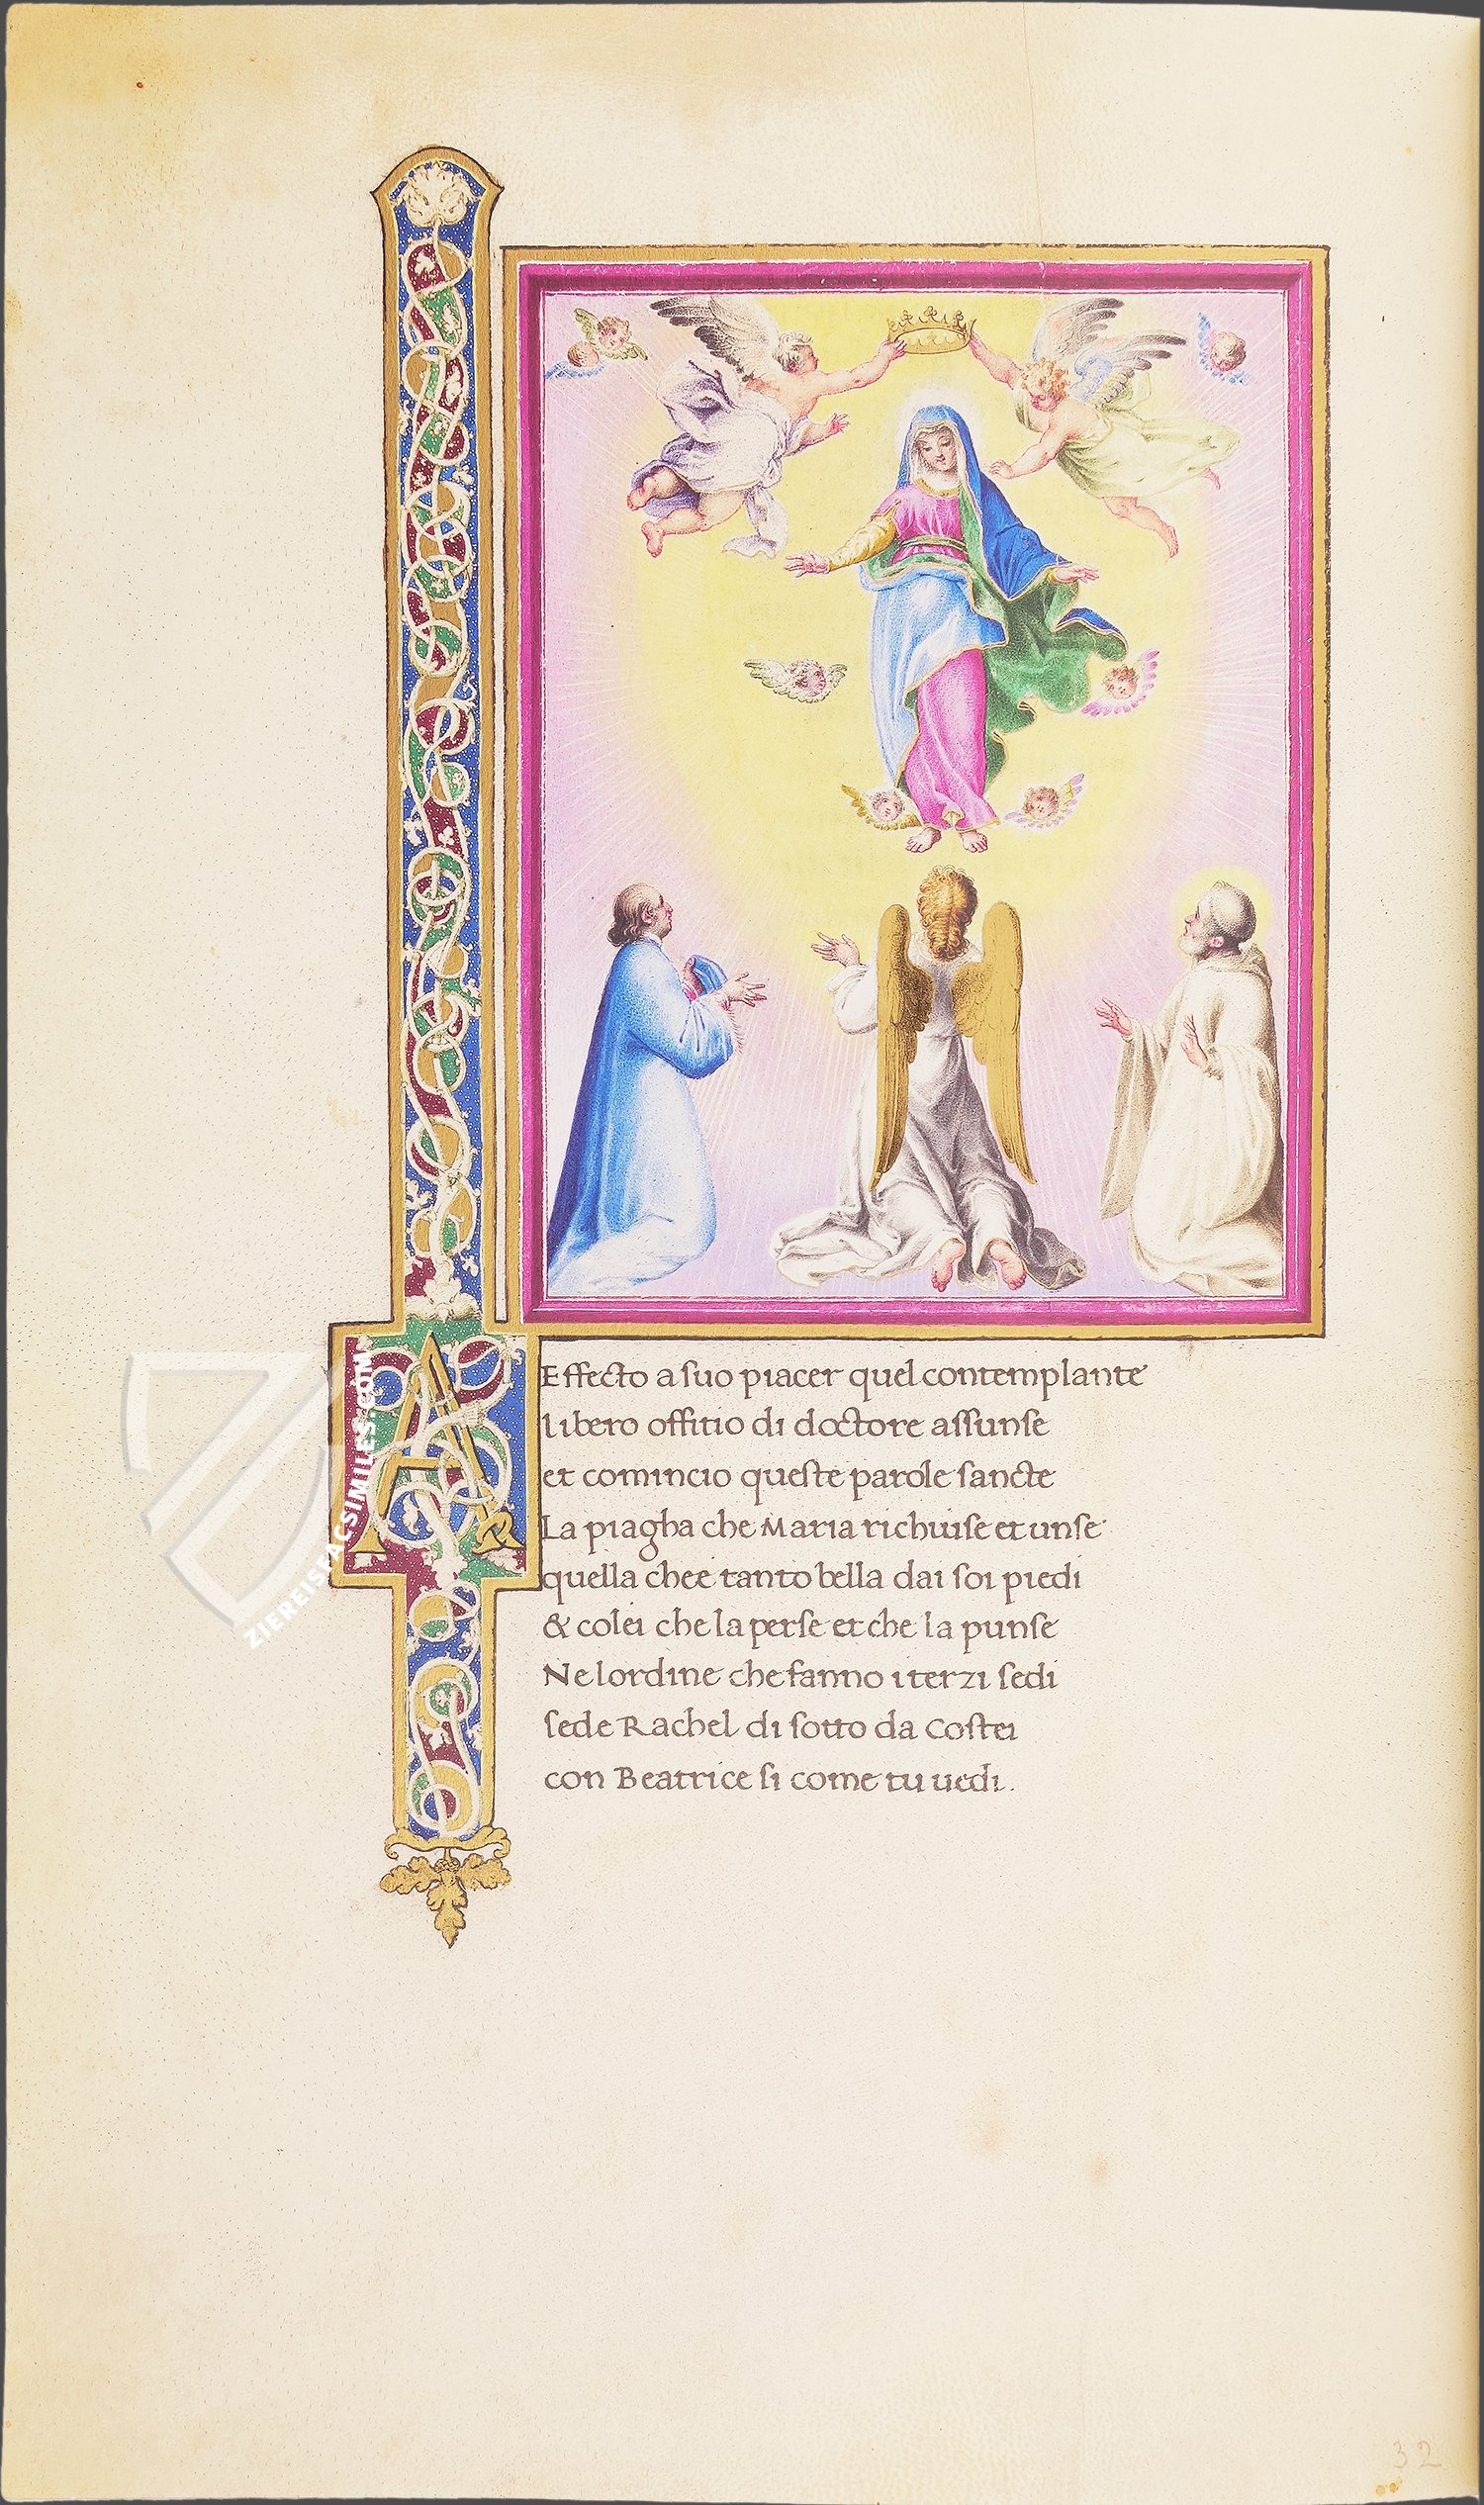 AEffecto a suo piacer quel contemplante
libero offitio di doctore assunse
et comincio queste parole sancte
La piagha che Maria richiuise et unse
quella chee tanto bella dai soi piedi
& colei che la perse et che la punse
Ne lordine che fanno i terzi sedi
sede Rachel di sotto da Costei
con Beatrice si come tu uedi.
ZIEREISFACSIMILES.COM
32